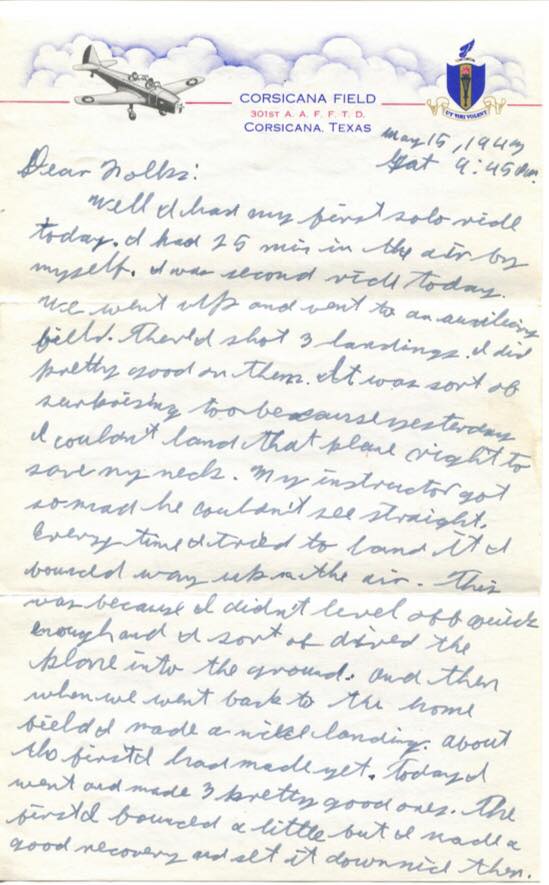 CORSICANA FIELD
301ST A. A. F. F. T. D.
CORSICANA, TEXAS
UT VIRI VOLENT
May 15, 1943
Sat 9:45 Pm.
Dear Folks:
Well I had my first solo ride
today. I had 25 min in the air by
myself. I was second ride today.
We went up and went to an auxiliary
field. There I shot 3 landings. I did
pretty good on them. It was sort of
surprising too because yesterday
I couldn't land that plane right to
save my neck. My instructor got
so mad he couldn't see straight.
Every time I tried to land it I
bounced way up in the air. This
was because I didn't level off quick
enough and I sort of dived the
plane into the ground. And then
when we went back to the home
field I made a nice landing. About
the first I had made yet. Today I
went and made 3 pretty good ones. The
first I bounced a little but I made a
good recovery and set it down nice then.